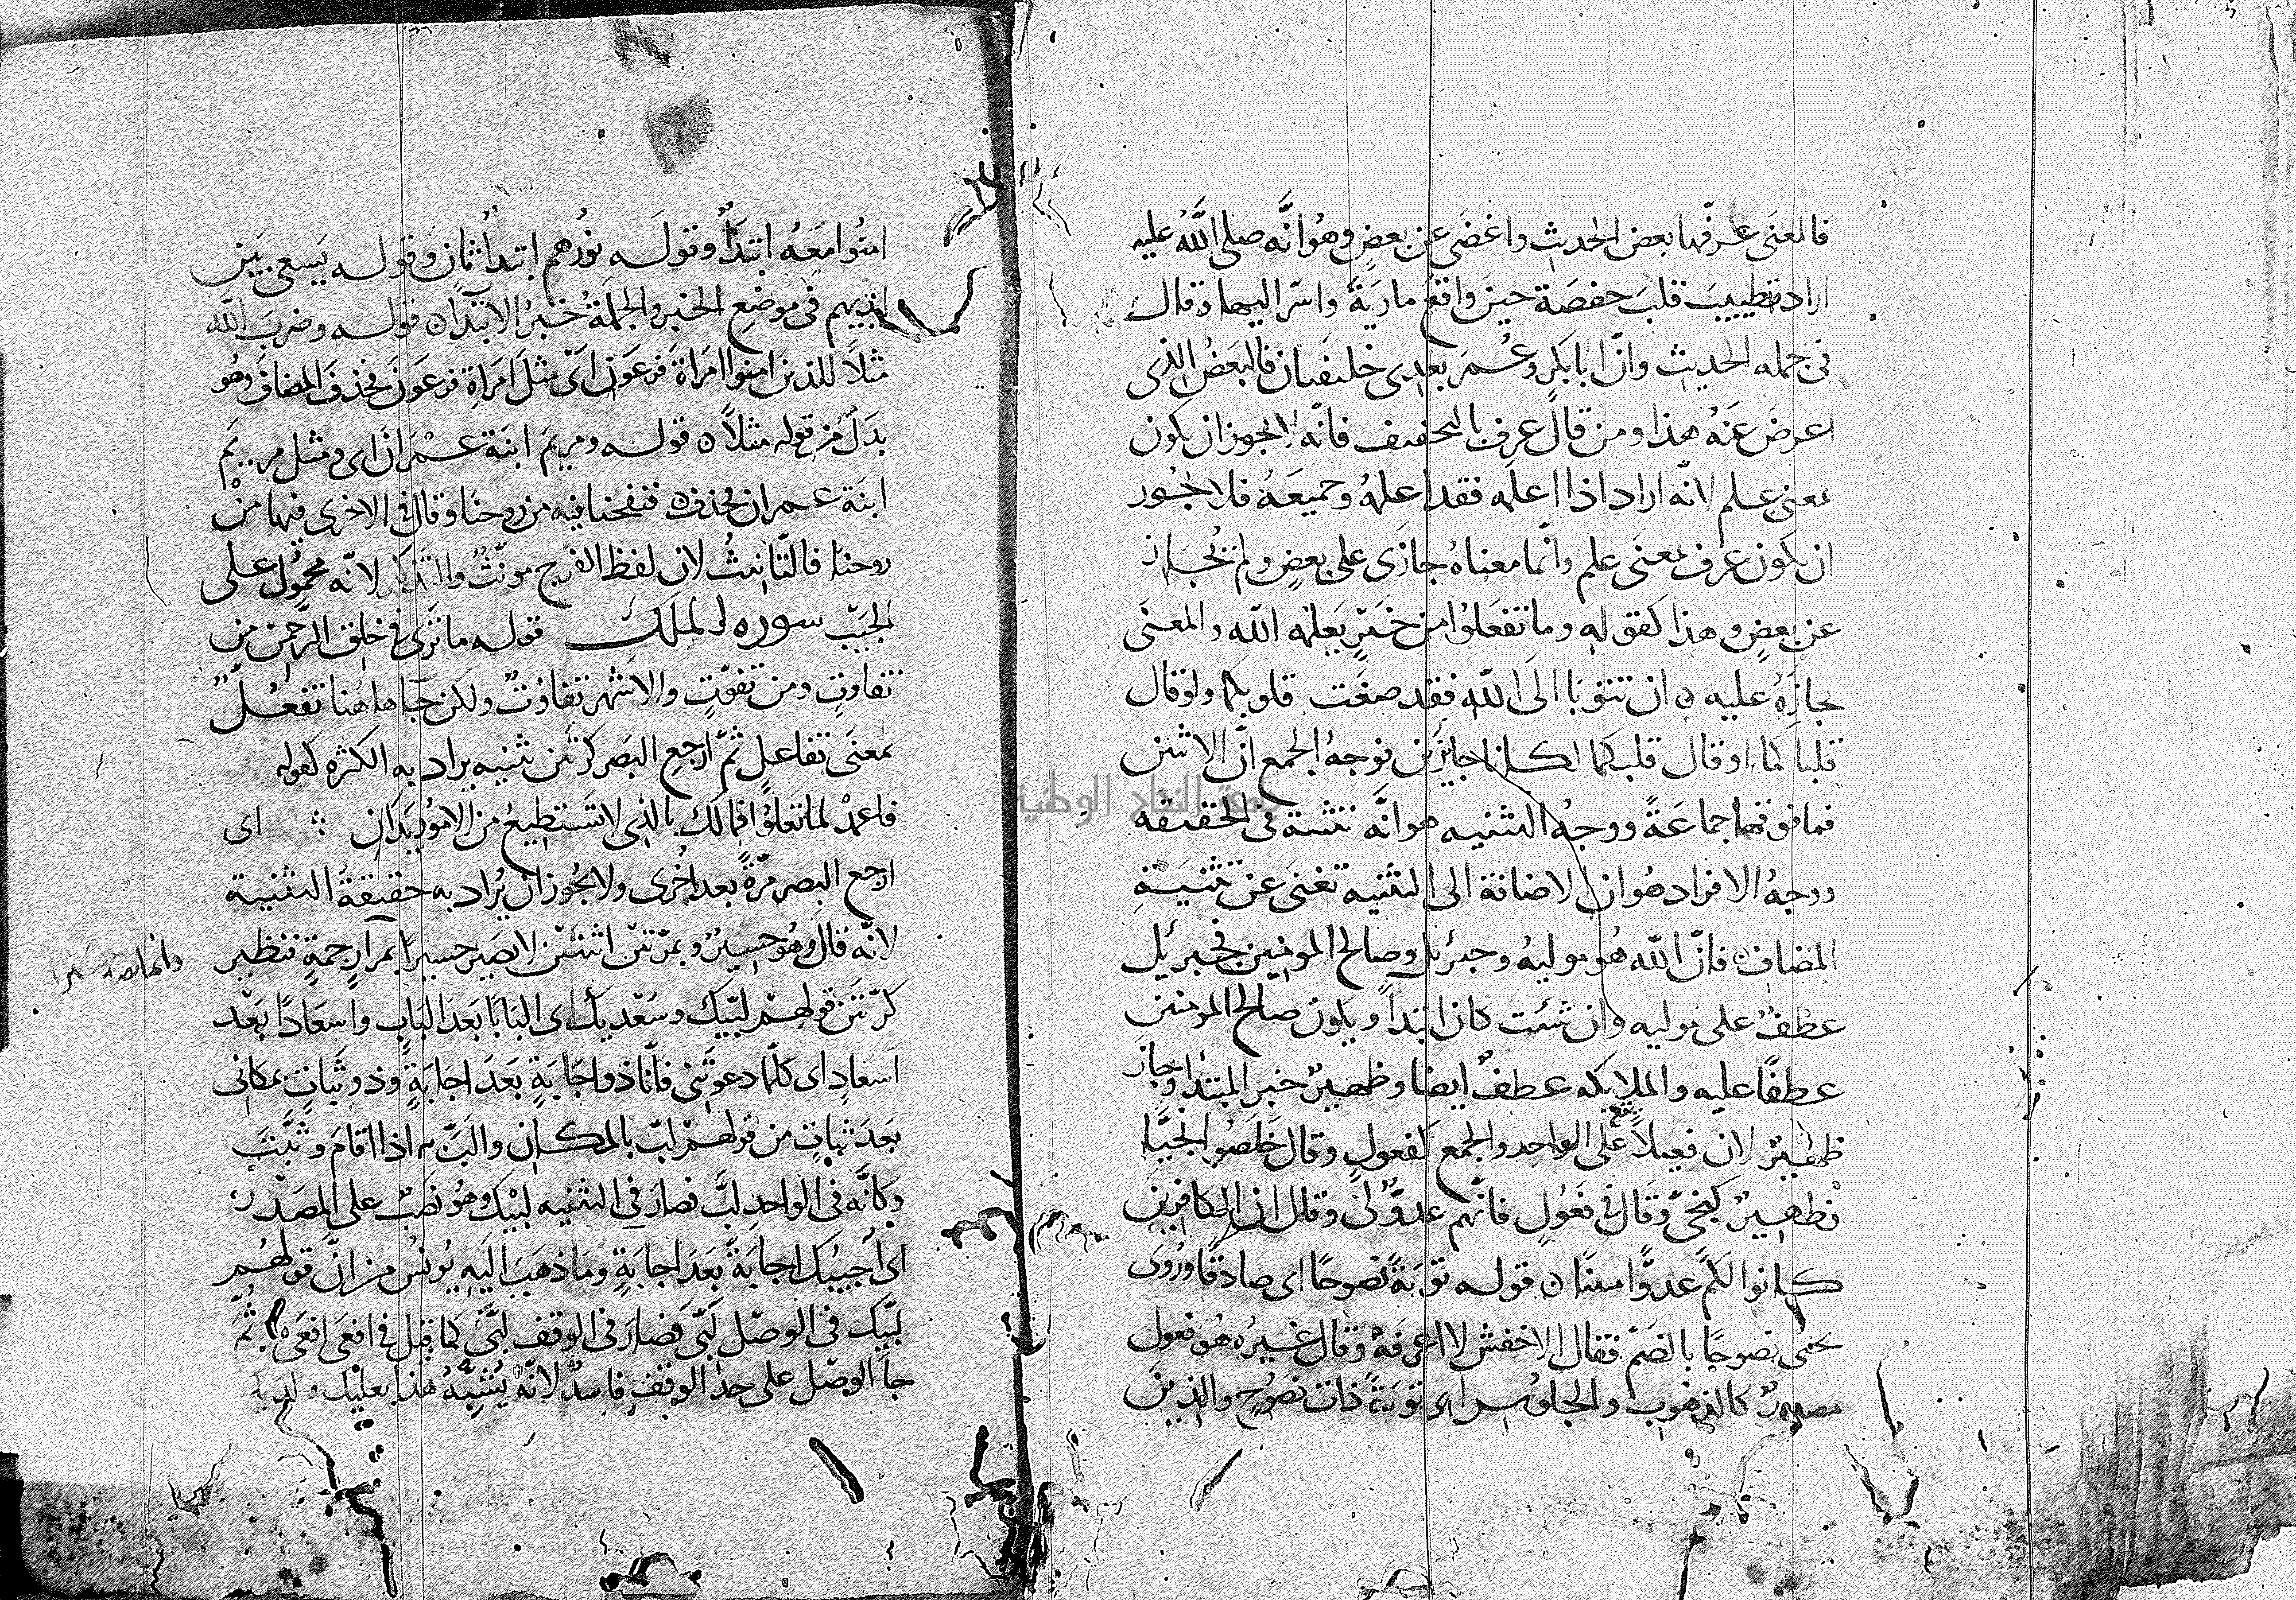 فالمعنى عرّفها بعض الحديث واغضى عن بعضٍ وهو انّه صلى اللّه عليه
اراد تطييب قلب حفصة حين واقع مارية واسرّ اليها وقال
فى جمله الحديث وانّ ابا بكرٍ وعُمرَ بعدى خليفتان فالبعضُ الذى
اعرض عنه هذا ومن قال عرف بالتخفيف فانّه لا يجوز ان يكون
بمعنى علم لانّه اراد اذا اعلمه فقد اعلمهُ وجميعَهُ فلا يجُوز
ان يكون عرف بمعنى علم وانّما معناهُ جازى على بعضٍ ولم يُجاز
عن بعضٍ وهذا كقوله وما تفعلوا من خيرٍ يعلمه اللّه والمعنى
يجازه عليه ن ان تتوبا الى اللّه فقد صغت قلوبكما ولو قال
قلباكما او قال قلبكما لكان جايزين فوجهُ الجمع انّ الاثنين
فما فوقهما جماعةً ووجهُ التثنيه هو انّه تثنية فى الحقيقه
ووجهُ الافراد هو ان الاضافة الى التثنيه تغنى عن تثنية
المضاف ن فانّ اللّه هو موليهُ وجبرئيل وصالح المومنين فجبرئيل
عطفٌ على موليه وان شئت كان ابتدأ ويكون صالح المومنين
عطفًا عليه والملايكه عطفٌ ايضا وظهيرٌ خبر المبتدأ وجاز
ظهيرٌ لان فعيلاً يقع على الواحد والجمع كفعولٍ وقال خلصوا نجيًّا
فظهيرٌ كنجىّ وقال فى فعُولٍ فانّهم عدوٌّ لى وقال ان الكافرين
كانوا لكم عدوًّا مبينًا ن قوله توبةً نصوحًا اى صادقًا ورُوى
يحيى نصوحًا بالضمّ فقال الاخفش لا اعرفه وقال غيره هو فعول
مصدرٌ كالذهوب والجلوس اى توبةً ذات نصُوحٍ والذين
امنُوا معَهُ ابتدأٌ وقولَه نورُهم ابتدأٌ ثانٍ وقوله يَسعى بين
ايديهم فى موضع الخبر والجملةُ خبرُ الابتدا ن قوله وضربَ اللّه
مثلاً للذين امنوا امراةَ فرعون اى مثلَ امراةِ فرعون فحذف المضاف وهو
بدَلٌ من قوله مثلاً ن قوله ومريمَ ابنة عمران اى ومثل مريم
ابنة عمران فحذف ن فنفخنا فيه من روحنا وقال فى الاخرى فيها من
روحنا فالتّانيثُ لان لفظ الفرج مونّثٌ والتذكير لانّه محمولٌ على
الجيب سوره الملك قوله ما ترى فى خلق الرحمن من
تفاوتٍ ومن تفوّتٍ والاشهر تفاوتٌ ولكن جا هاهُنا تفعّلٌ
بمعنى تفاعلٍ ثم ارجع البصر كرّتين تثنيه يراد به الكثره كقوله
فاعمد لما تعلُو فمالك بالذى لا تستطيعُ من الامُور يَدانِ ؞ اى
ارجع البصر مرّةً بعد اُخرى ولا يجُوز ان يُراد به حقيقةُ التثنية
لانّه قال وهُو حسيرٌ وبمرّتين اثنتين لا يصير حسيرًا بمرارٍ جمةٍ فنظير
وانما يصير حسيرا
كرّتين قولهم لبّيك وسعْديك اى البابًا بعد البابٍ واسعادًا بعْد
اسعادٍ اى كلّما دعوتنى فانّا ذو اجابةٍ بعد اجابةٍ وذو ثباتٍ بمكانى
بعد ثباتٍ من قولهم لبّ بالمكان والبّ به اذا اقام وثبتَ
وكانّه فى الواحد لبَّ فصار فى التثنيه لبّيك وهو نصبٌ على المصدر
اى اُجيبُك اجابةً بعد اجابةٍ وما ذهب اليه يُونسُ من انّ قولهُم
لبّيك فى الوصل لبّى فصار فى الوقف لبّى كما قيل فى افعى افعى ثمّ
جا الوصل على حدّ الوقف فاسدٌ لانّه يُشبّهُ هذا بعليك ولديك